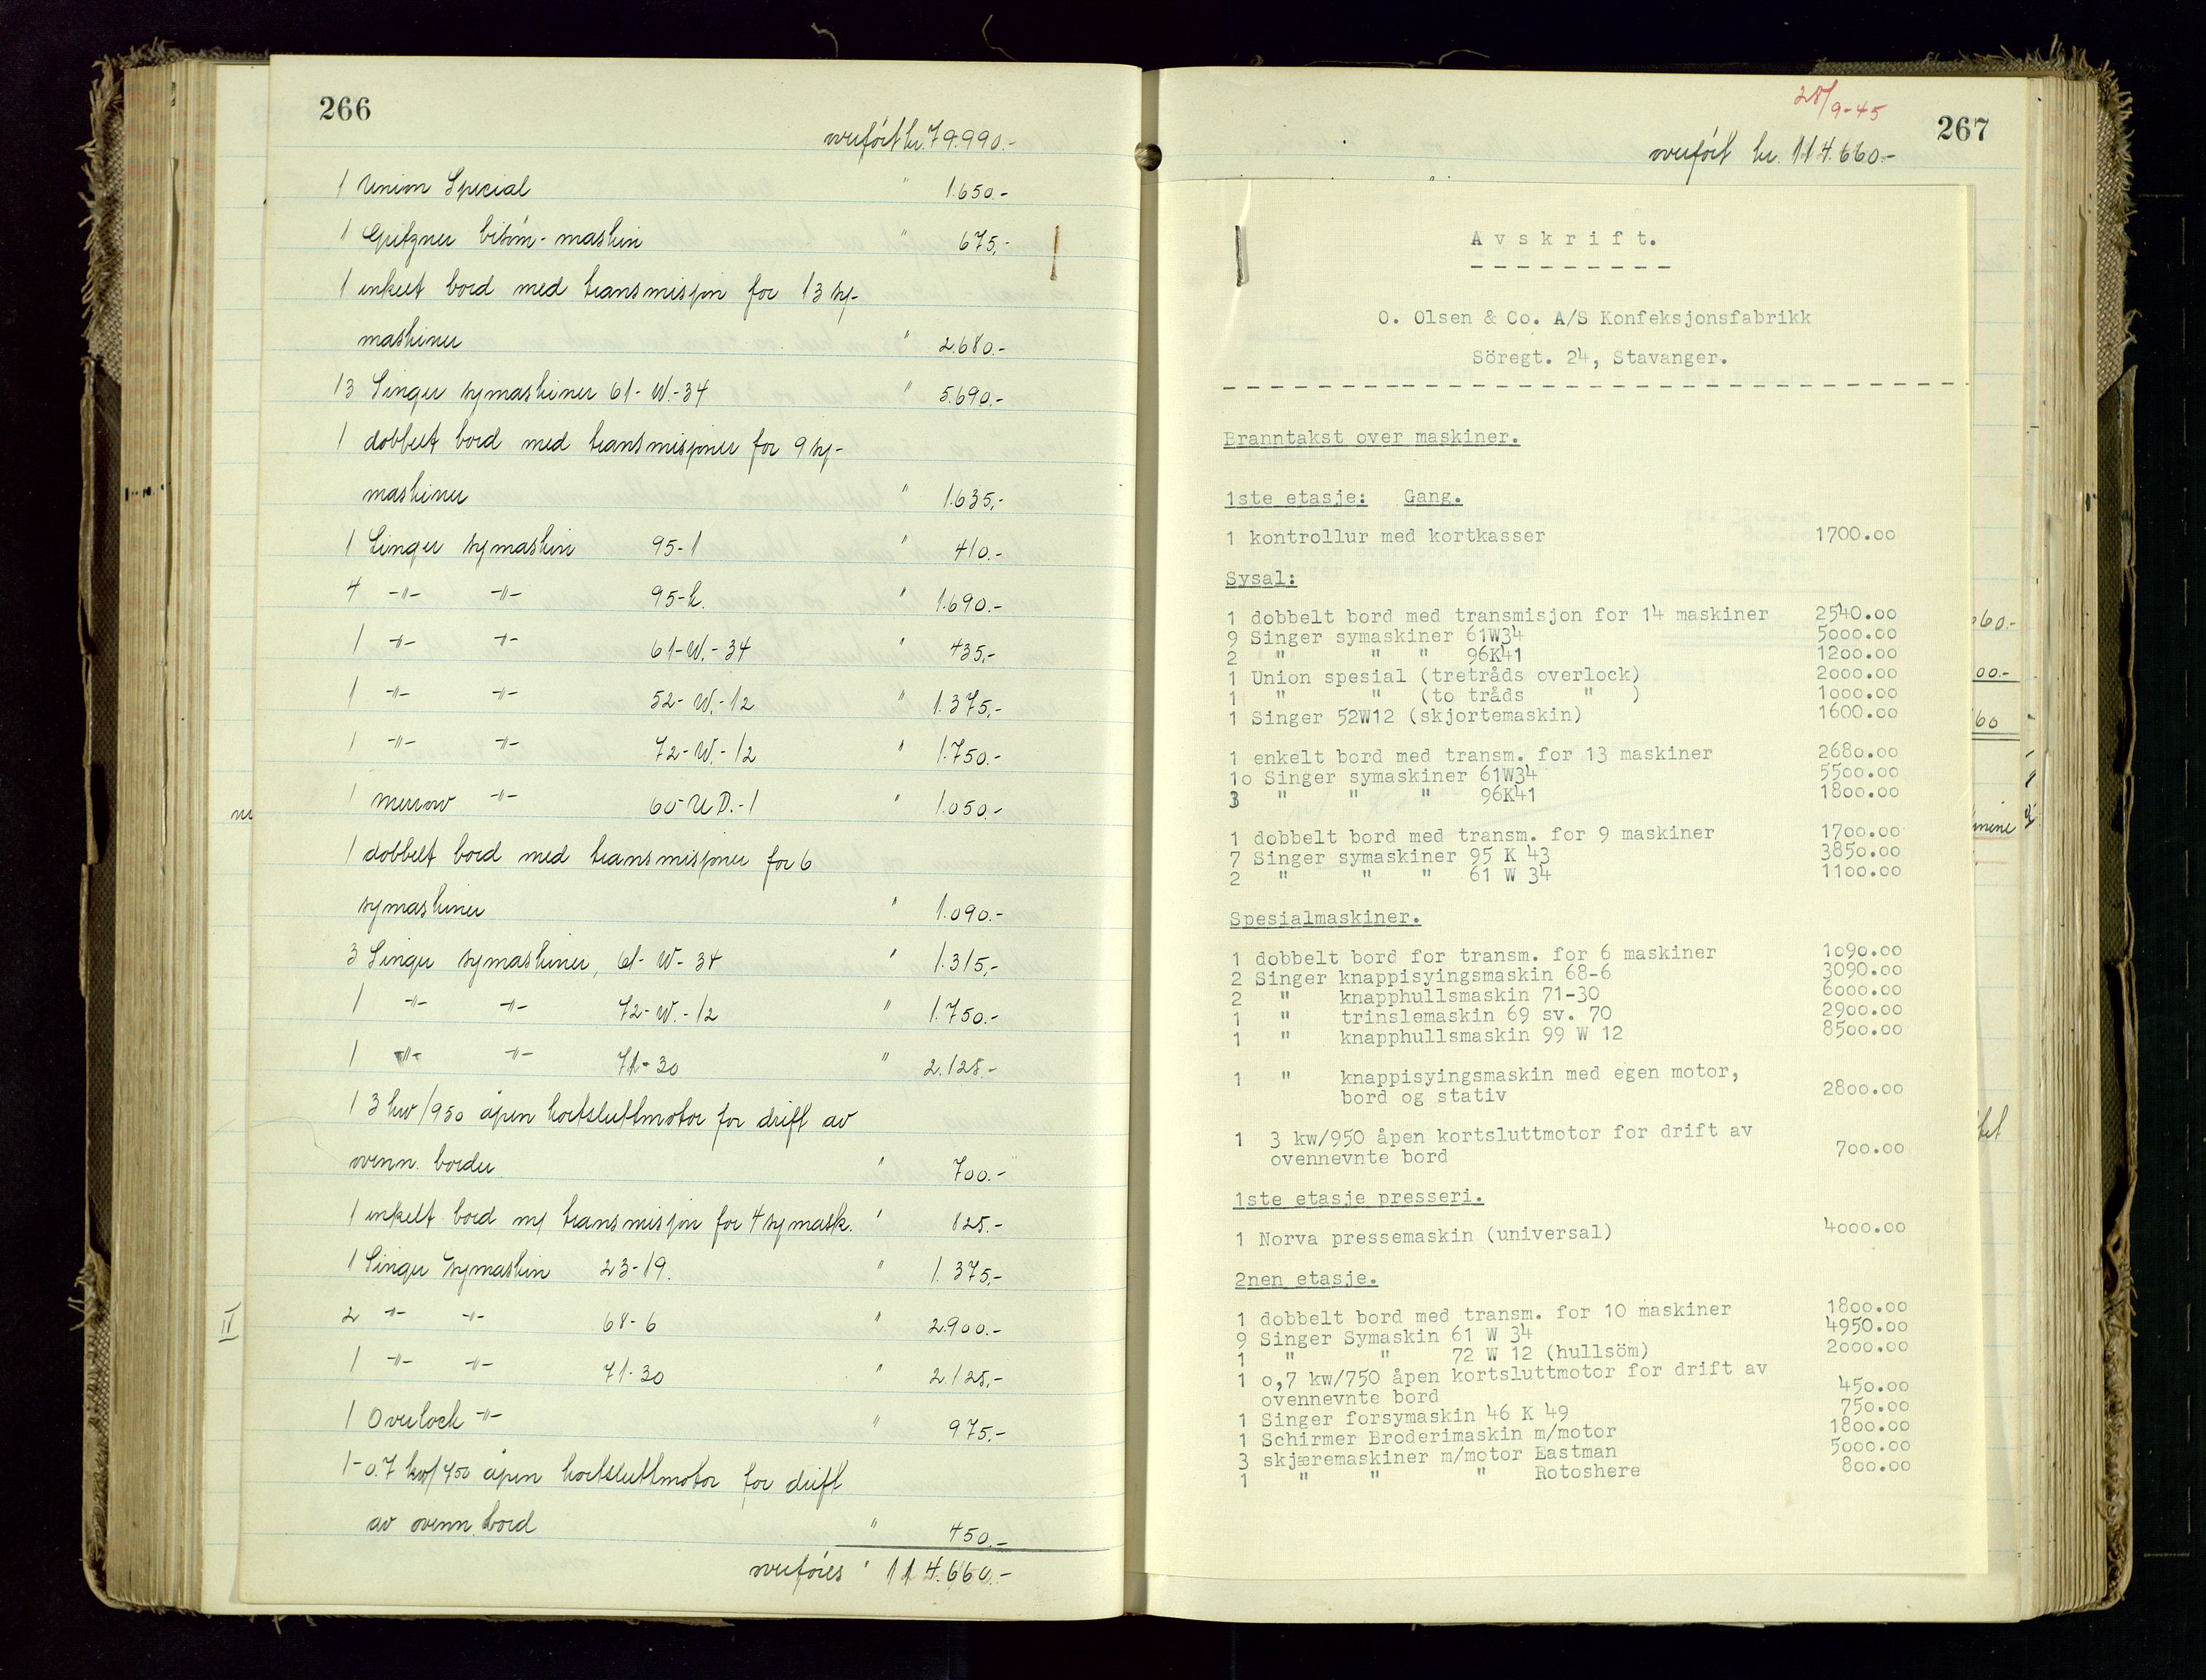 266
overført kr. 79.990.-
1 Union Special " 1.650.-
1 Gritzner bisøm-maskin " 675.-
1 enkelt bord med transmisjon for 13 sy-
maskiner " 2.680.-
13 Singer symaskiner 61-W.-34 " 5.690.-
1 dobbelt bord med transmisjoner for 9 sy-
maskiner " 1.635.-
1 Singer symaskin 95-1 " 410.-
4 -"- -"- 95-k. " 1.690.-
1 -"- -"- 61-W.-34 " 435.-
1 -"- -"- 52-W.-12 " 1.375.-
1 -"- -"- 72-W.-12 " 1.750.-
1 merrow -"- 60-U.D.-1 " 1.050.-
1 dobbelt bord med transmisjoner for 6
symaskiner " 1.090.-
3 Singer symaskiner, 61-W-34 " 1.315.-
1 -"- -"- 72-W.-12 " 1.750.-
1 -"- -"- 71-30 " 2.125.-
1 3 kw/950 åpen kortsluttmotor for drift av
ovenn. bord " 700.-
1 enkelt bord m/ transmisjon for 4 symask. " 825.-
1 Singer symaskin 23-19. " 1.375.-
2 -"- -"- 68-6 " 2.900.-
1 -"- -"- 71-30 " 2.125.-
1 Overlock -"- " 975.-
1-0.7 kw/750 åpen kortsluttmotor for drift
av ovenn. bord " 450.-
overføres " 114.660.-
28/9-45
267
overført kr. 114.660.-
Avskrift.
O. Olsen & Co. A/S Konfeksjonsfabrikk
Söregt. 24, Stavanger.
Branntakst over maskiner.
1ste etasje: Gang.
1 kontrollur med kortkasser 1700.00
Sysal:
1 dobbelt bord med transmisjon for 14 maskiner 2540.00
9 Singer symaskiner 61W34 5000.00
2 " " " 96K41 1200.00
1 Union spesial (tretråds overlock) 2000.00
1 " " (to tråds " ) 1000.00
1 Singer 52W12 (skjortemaskin) 1600.00
1 enkelt bord med transm. for 13 maskiner 2680.00
10 Singer symaskiner 61W34 5500.00
3 " " " 96K41 1800.00
1 dobbelt bord med transm. for 9 maskiner 1700.00
7 Singer symaskiner 95 K 43 3850.00
2 " " " 61 W 34 1100.00
Spesialmaskiner.
1 dobbelt bord for transm. for 6 maskiner 1090.00
2 Singer knappisyingsmaskin 68-6 3090.00
2 " knapphullsmaskin 71-30 6000.00
1 " trinslemaskin 69 sv. 70 2900.00
1 " knapphullsmaskin 99 W 12 8500.00
1 " knappisyingsmaskin med egen motor,
bord og stativ 2800.00
1 3 kw/950 åpen kortsluttmotor for drift av
ovennevnte bord 700.00
1ste etasje presseri.
1 Norva pressemaskin (universal) 4000.00
2nen etasje.
1 dobbelt bord med transm. for 10 maskiner 1800.00
9 Singer Symaskin 61 W 34 4950.00
1 " " 72 W 12 (hullsöm) 2000.00
1 0,7 kw/750 åpen kortsluttmotor for drift av
ovennevnte bord 450.00
1 Singer forsymaskin 46 K 49 750.00
1 Schirmer Broderimaskin m/motor 1800.00
3 skjæremaskiner m/motor Eastman 5000.00
1 " " " Rotoshere 800.00